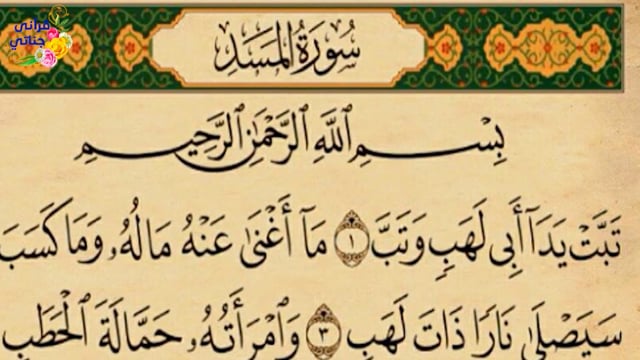 قرآنى
جناتي
سُورَةُ المَسَدِ
بِسْمِ اللَّهِ الرَّحْمَٰنِ الرَّحِيمِ
تَبَّتْ يَدَآ أَبِى لَهَبٍ وَتَبَّ ١ مَآ أَغْنَىٰ عَنْهُ مَالُهُۥ وَمَا كَسَبَ
سَيَصْلَىٰ نَارًا ذَاتَ لَهَبٍ ٣ وَٱمْرَأَتُهُۥ حَمَّالَةَ ٱلْحَطَبِ